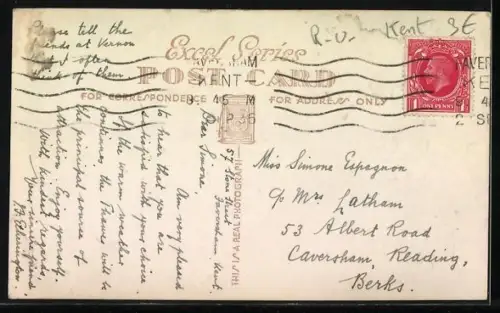 Please tell the
friends at Vernon
that I often
think of them.
R.V. Kent 3£
Excel Series
POST CARD
FOR CORRESPONDENCE
FOR ADDRESS ONLY
FAVERSHAM
KENT
8. 45 M
SP 35
1 ONE PENNY 1
AVER
KE
45
2 SE
THIS IS A REAL PHOTOGRAPH
57 Stone Street
Faversham Kent.
Dear Simone
Am very pleased
to hear that you are
satisfied with your choice.
If the warm weather
continues the Thames will be
the principal source of
attraction. Enjoy yourself.
With kindest regards,
Your sincere friend
P.B. Etherington.
Miss Simone Espagnon
c/o Mrs Latham
53 Albert Road
Caversham, Reading,
Berks.